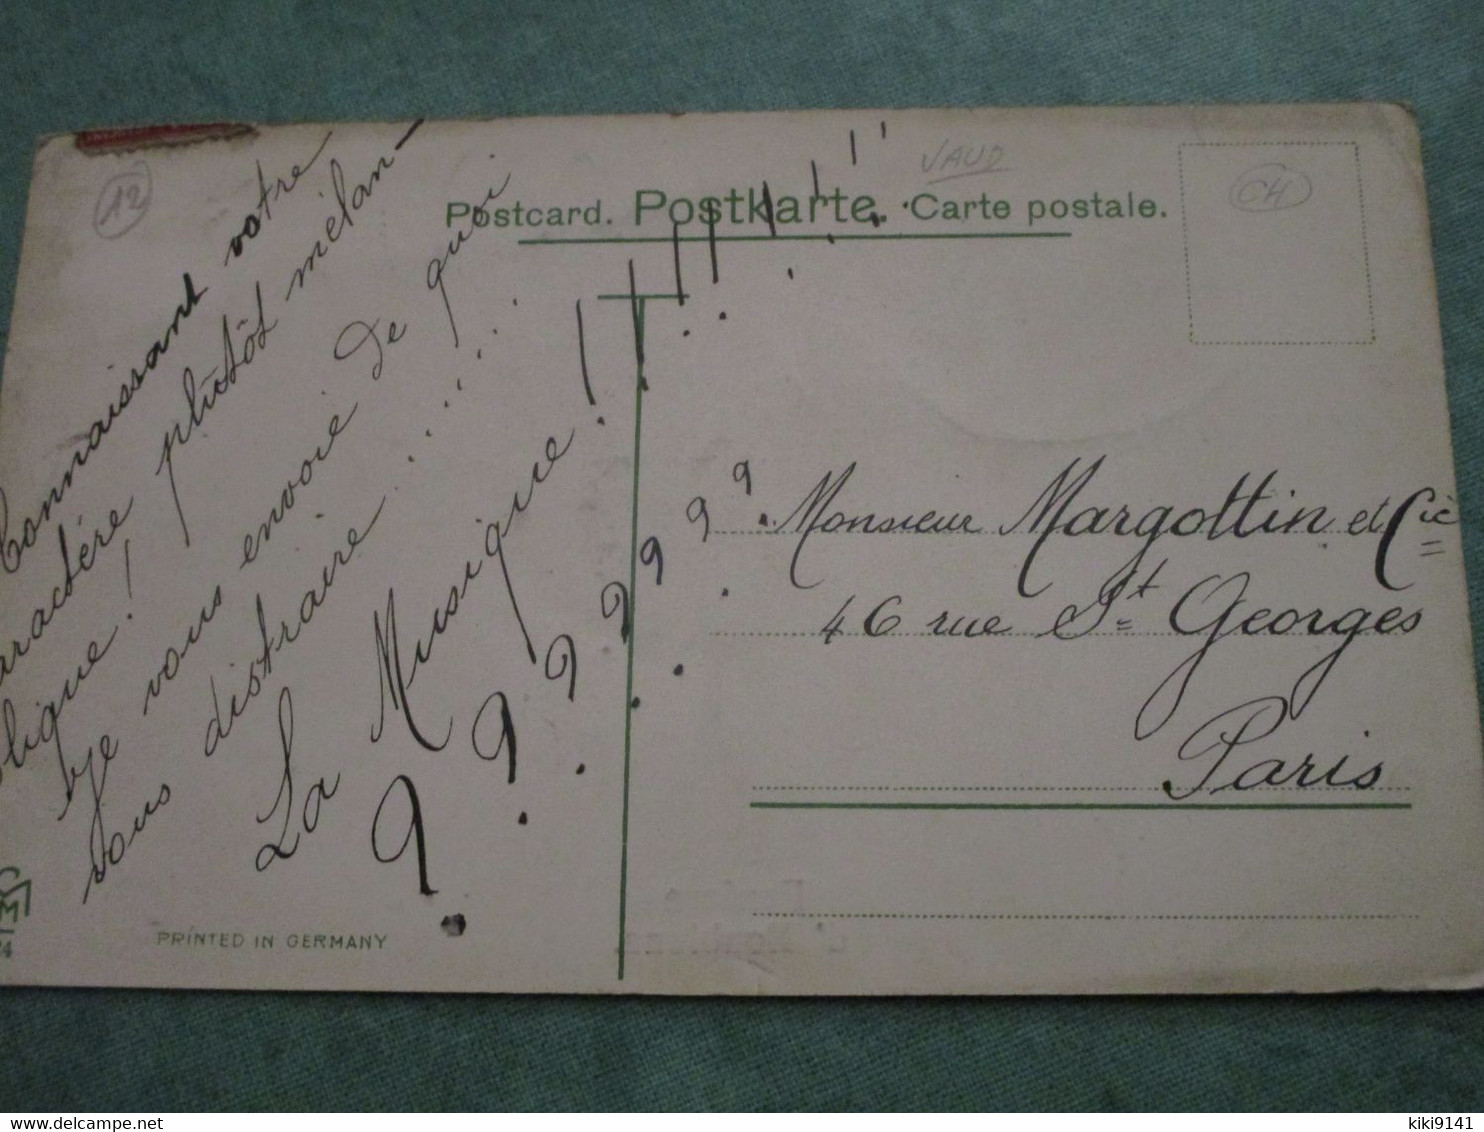 12
VAUD
CH
Postcard. Postkarte. Carte postale.
Connaissant votre
caractére plutôt mélan-
colique!
je vous envoie de quoi
vous distraire . . . . . .
La Musique !!!!!!!!!!
? ? ? ? ? ? ?
Monsieur Margottin et Cie
46 rue St Georges
Paris
24
PRINTED IN GERMANY
delcampe.net
kiki9141